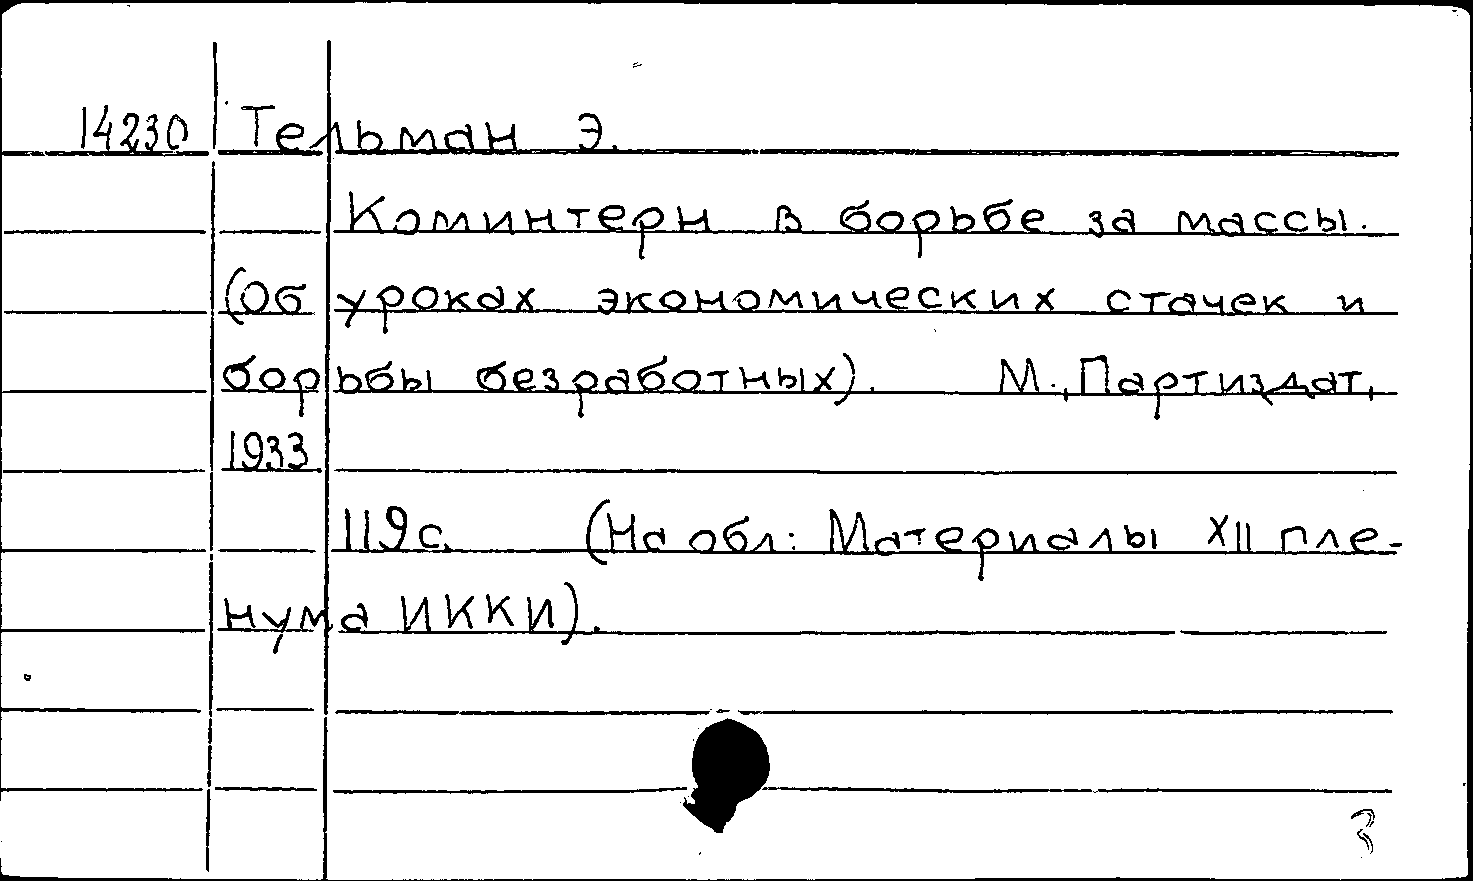 14230 Тельман Э.
Коминтерн в борьбе за массы.
(Об уроках экономических стачек и
борьбы безработных). М., Партиздат,
1933.
119 с. (На обл: Материалы XII пле-
нума ИККИ).
3